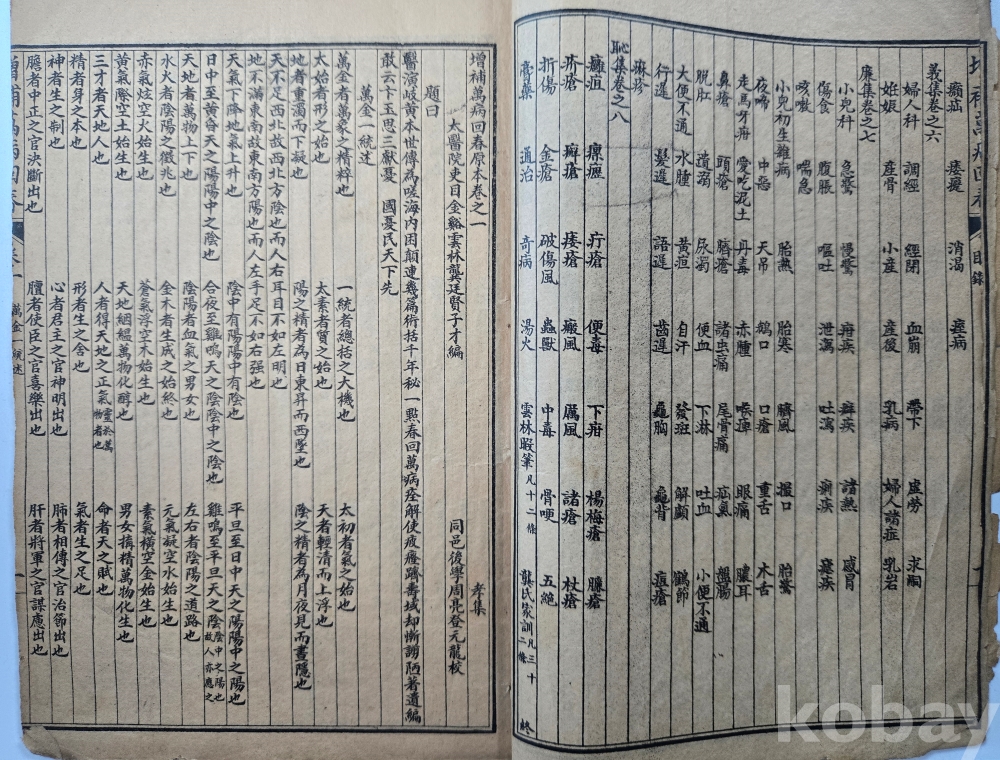 目錄
癲疝 痿躄 消渴 痙病
義集卷之六
婦人科 調經 經閉 血崩 帶下 虛勞 求嗣
姙娠 產育 小產 產後 乳病 婦人諸症 乳岩
廉集卷之七
小兒科 急驚 慢驚 疳疾 癖疾 諸熱 感冒
傷食 腹脹 嘔吐 泄瀉 吐瀉 痢疾 瘧疾
咳嗽 喘急
小兒初生雜病 胎熱 胎寒 臍風 撮口 胎驚
夜啼 中惡 天吊 鵝口 口瘡 重舌 木舌
走馬牙疳 愛吃泥土 丹毒 赤腫 喉痺 眼痛 膿耳
鼻瘡 臍瘡 諸虫痛 尾骨痛 疝氣 盤腸
脫肛 遺溺 尿濁 便血 下淋 吐血 小便不通
大便不通 水腫 黃疸 自汗 發斑 解顱 鶴節
行遲 髮遲 語遲 齒遲 龜胸 龜背 痘瘡
麻疹
恥集卷之八
癰疽 瘰癧 疔瘡 便毒 下疳 楊梅瘡 臁瘡
疥瘡 癬瘡 痿瘡 癜風 厲風 諸瘡 杖瘡
折傷 金瘡 破傷風 蟲獸 中毒 骨哽 五絕
膏藥 通治 奇病 湯火 雲林暇筆凡十二條 龔氏家訓凡三十二條 終
增補萬病回春原本卷之一 孝集
太醫院吏目金谿雲林龔廷賢子才編 同邑後學周亮登元龍校
題曰
醫演岐黃本世傳為嗟海內困顛連幾篇術括千年秘一點春回萬病痊解使疲癃躋壽域却慚謭陋著遺編
敢云卞玉思三獻憂國憂民天下先
萬金一統述
萬金者萬象之精粹也 一統者總括之大機也 太初者氣之始也
太始者形之始也 太素者質之始也 天者輕清而上浮也
地者重濁而下凝也 陽之精者為日東昇而西墜也 陰之精者為月夜見而晝隱也
天不足西北故西北方陰也而人右耳目不如左明也
地不滿東南故東南方陽也而人左手足不如右强也
天氣下降地氣上升也 陰中有陽陽中有陰也 平旦至日中天之陽陽中之陽也
日中至黃昏天之陽陽中之陰也 合夜至雞鳴天之陰陰中之陰也 雞鳴至平旦天之陰陰中之陽也故人亦應之
天地者萬物上下也 陰陽者血氣之男女也 左右者陰陽之道路也
水火者陰陽之徵兆也 金木者生成之始終也 元氣凝空水始生也
赤氣炫空火始生也 蒼氣浮空木始生也 素氣橫空金始生也
黃氣際空土始生也 天地絪縕萬物化醇也 男女搆精萬物化生也
三才者天地人也 人者得天地之正氣靈於萬物者也 命者天之賦也
精者身之本也 形者生之舍也 氣者生之足也
神者生之制也 心者君主之官神明出也 肺者相傅之官治節出也
膽者中正之官決斷出也 膻者使臣之官喜樂出也 肝者將軍之官謀慮出也
增補萬病回春 卷一 萬金一統述 一
kobay